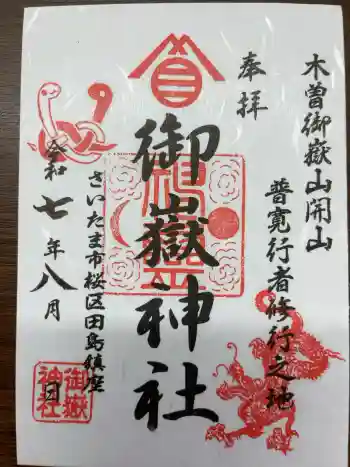 木曽御嶽山開山
普寛行者修行之地
奉拝
御嶽神社
さいたま市桜区田島鎮座
令和七年八月
日
御嶽
神社